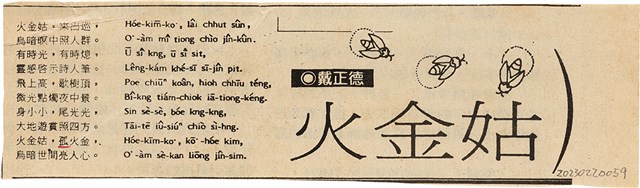 火金姑，來出巡， Hóe-kim-ko͘, lâi chhut sûn,
烏暗暝中照人群。 O͘-àm mî tiong chiò jîn-kûn.
有時光，有時熄， Ū sî kng, ū sî sit,
靈感啓示詩人筆。 Lêng-kám khé-sī si-jîn pit.
飛上高，歇樹頂， Poe chiūⁿ koân, hioh chhiū téng,
微光點燭夜中景。 Bî-kng tiám-chiok iā-tiong-kéng.
身小小，尾光光， Sin sè-sè, bóe kng-kng,
大地遊賞照四方。 Tāi-tē iû-siúⁿ chiò sì-hng.
火金姑，孤火金， Hóe-kim-ko͘, ko͘-hóe kim,
烏暗世間亮人心。 O͘-àm sè-kan liōng jîn-sim.
◎戴正德
火金姑
20230220059